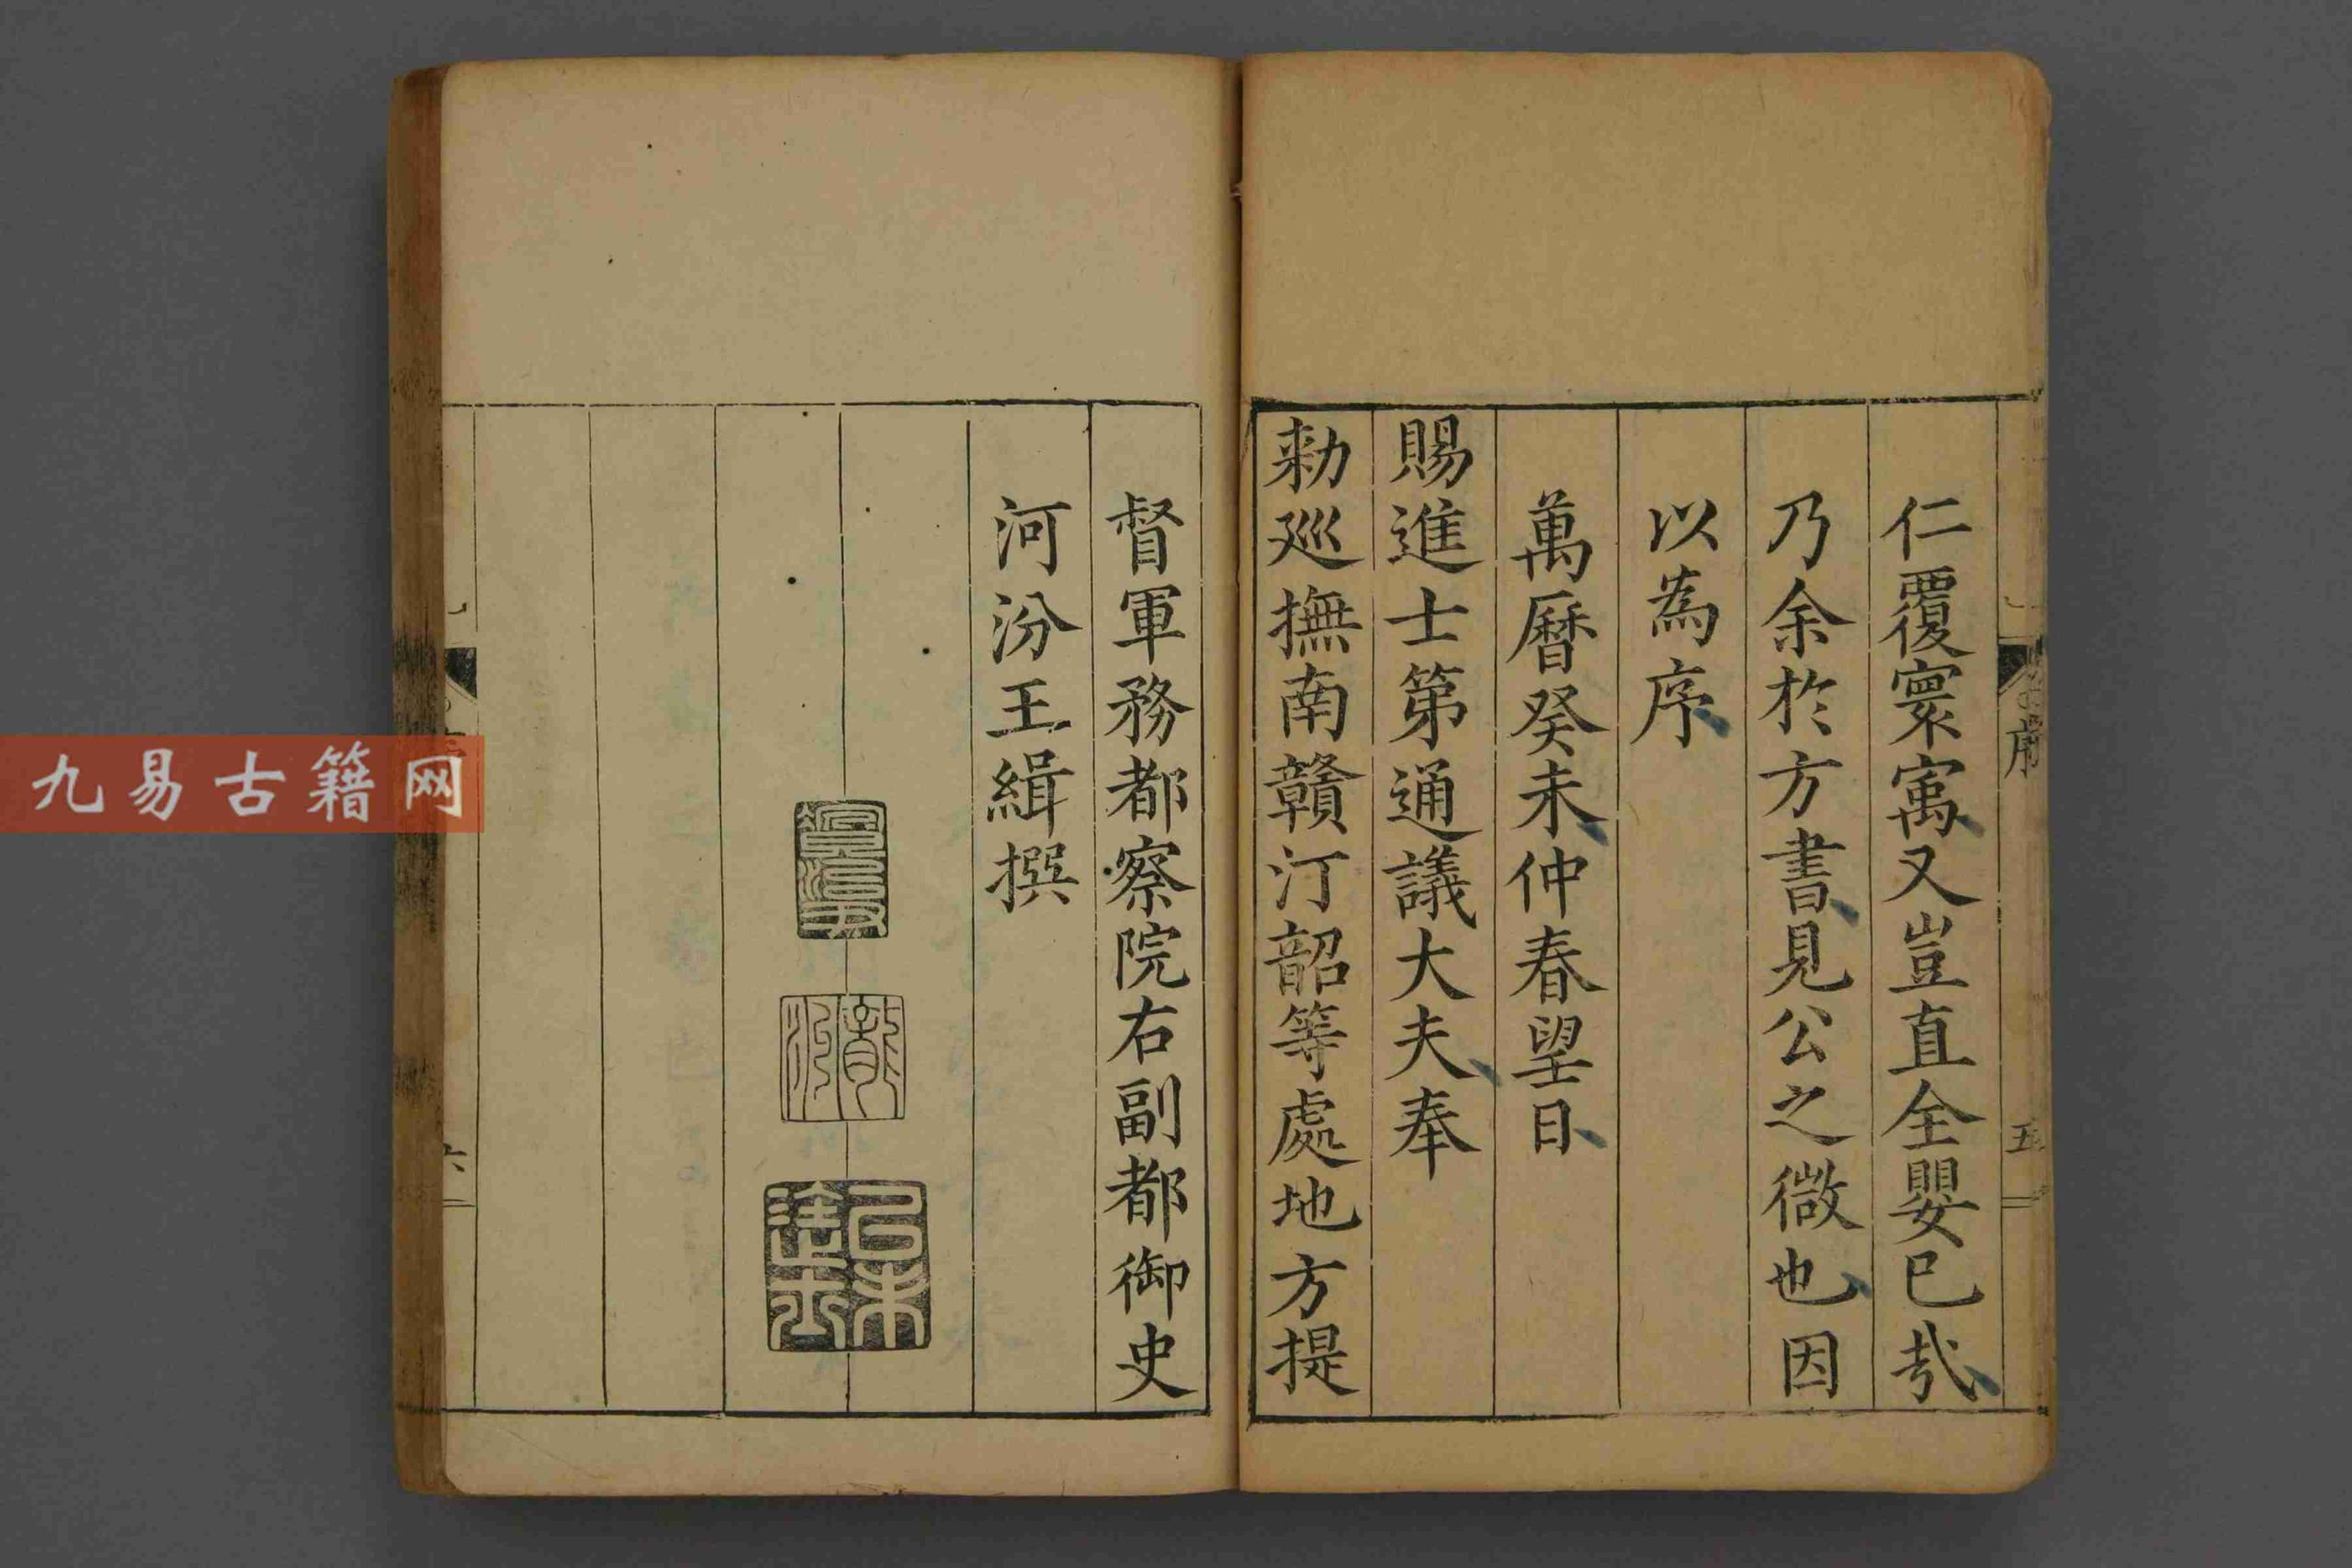 仁覆寰寓又豈直全嬰已㢤
乃余於方書見公之微也因
以為序
萬曆癸未仲春望日
賜進士第通議大夫奉
勑巡撫南贛汀韶等處地方提
督軍務都察院右副都御史
河汾王緝撰
序
五
六
龍淵
己未進士
九易古籍网